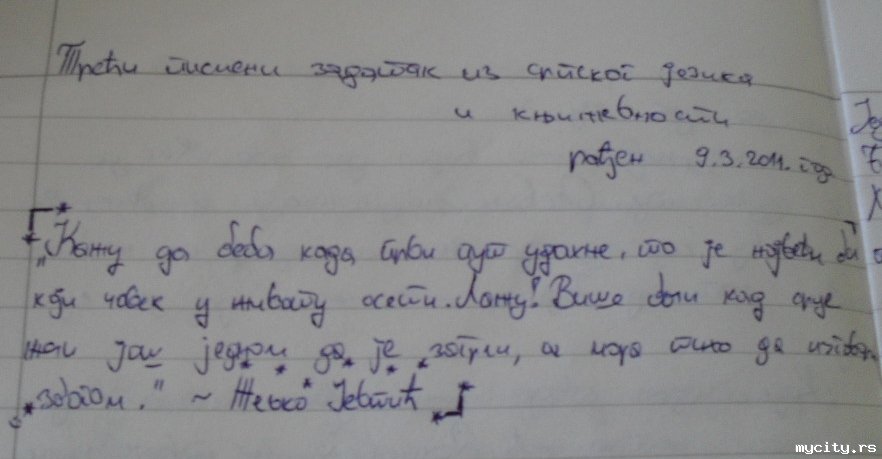 Трећи писмени задатак из српског језика
и књижевности
рађен 9.3.2011. год
„Кажу да беба када први пут удахне, то је највећи
који човек у животу осети. Лажу! Више боли кад срце
жели још једном да је загрли, а мора тихо да
заволом." ~ Жељко Јевтић
mycity.rs